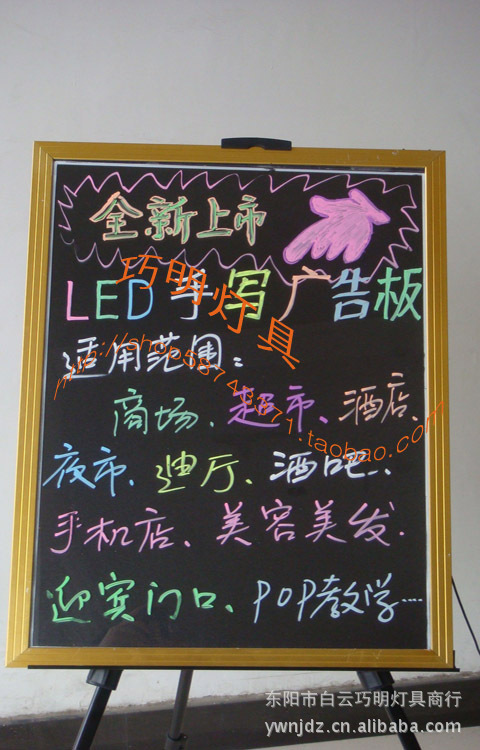 全新上市
LED手写广告板
巧明灯具
适用范围：
商场、超市、酒店、
夜市、迪厅、酒吧、
手机店、美容美发、
迎宾门口、POP教学……
东阳市白云巧明灯具商行
ywnjdz.cn.alibaba.com